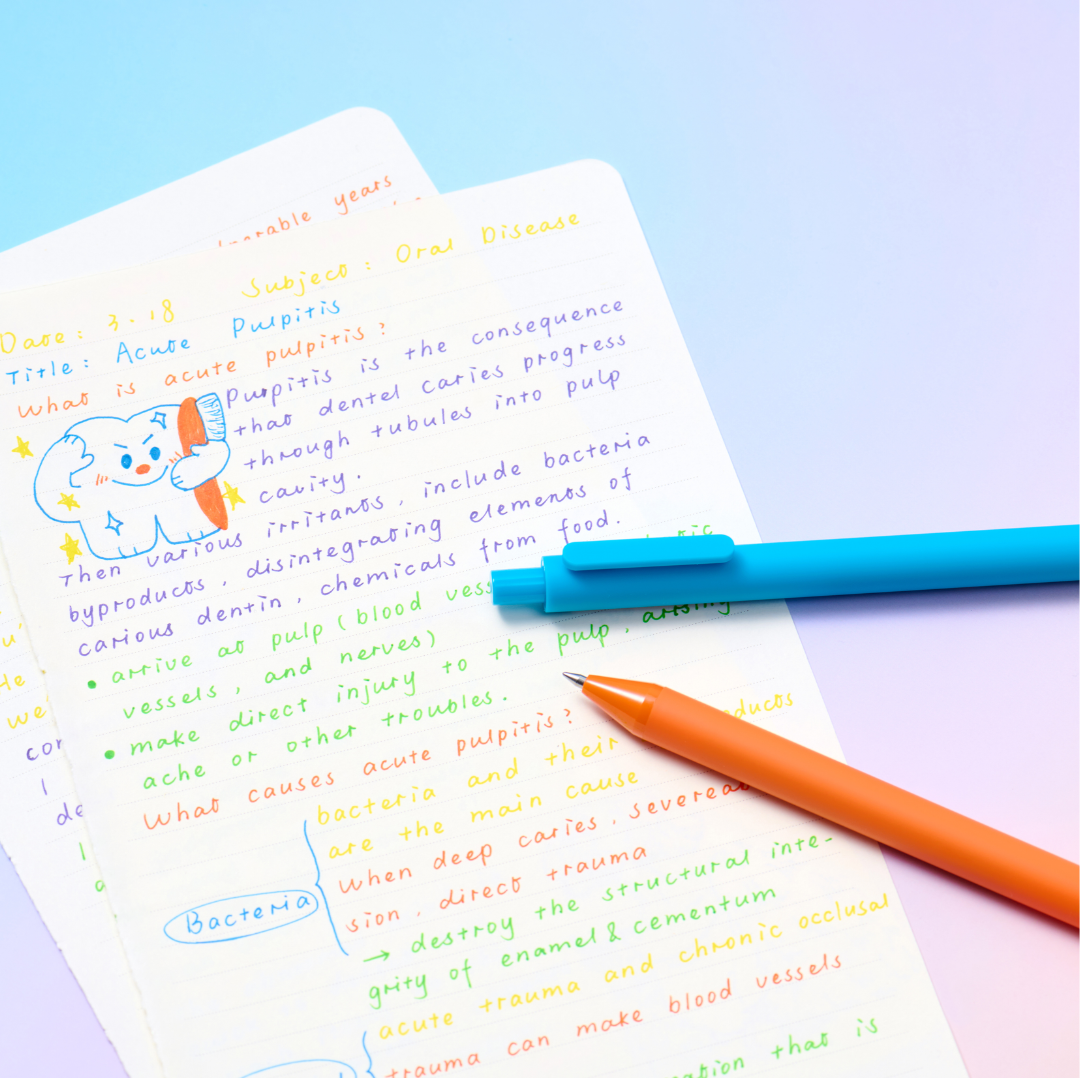 years
Date: 3.18 Subject: Oral Disease
Title: Acute Pulpitis
What is acute pulpitis?
Pulpitis is the consequence
that dentel caries progress
through tubules into pulp
cavity.
Then various irritants, include bacteria
byproducts, disintegrating elements of
carious dentin, chemicals from food.
• arrive at pulp (blood
vessels, and nerves)
• make direct injury to the pulp, arising
ache or other troubles.
What causes acute pulpitis?
bacteria and their
are the main cause
Bacteria
when deep caries,
sion, direct trauma
→ destroy the structural inte-
grity of enamel & cementum
acute trauma and chronic occlusal
trauma can make blood vessels
that is
we